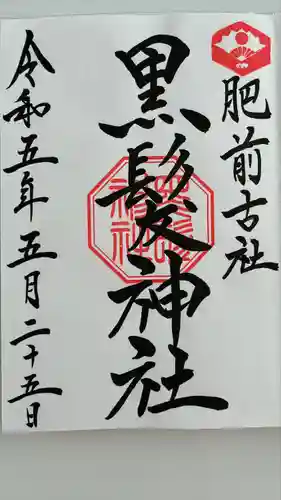 肥前古社
黒髪神社
令和五年五月二十五日